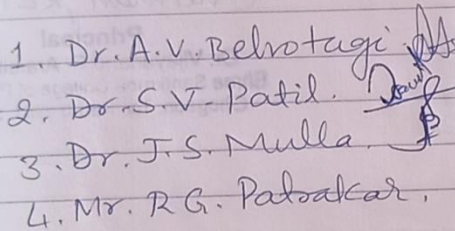 1. Dr. A. V. Belrotagi.
2. Dr. S. V. Patil.
3. Dr. J. S. Mulla.
4. Mr. R G. Patrakar.